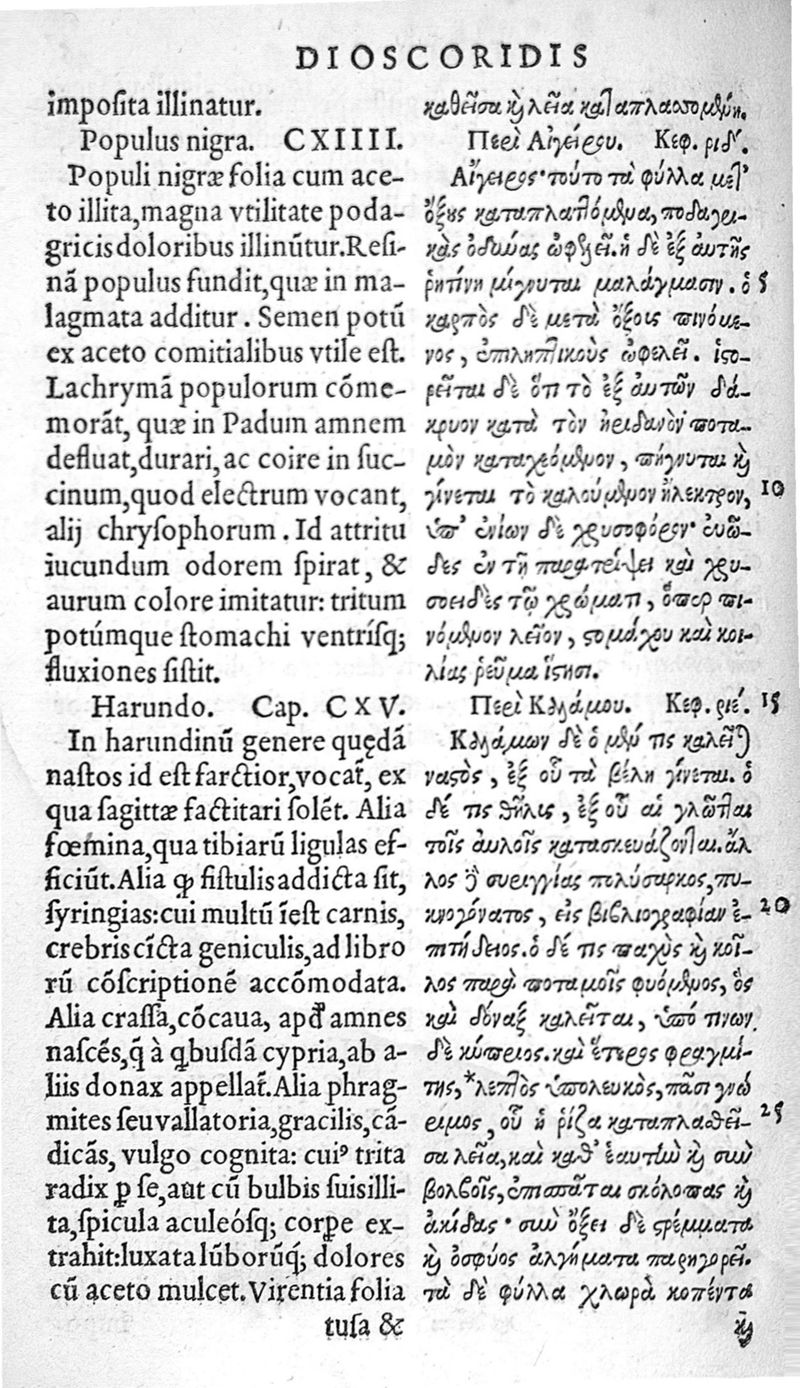 DIOSCORIDIS
impoſita illinatur.
Populus nigra. CXIIII.
Populi nigræ folia cum ace-
to illita, magna vtilitate poda-
gricis doloribus illinũtur. Reſi-
nã populus fundit, quæ in ma-
lagmata additur. Semen potũ
ex aceto comitialibus vtile eſt.
Lachrymã populorum cõme-
morãt, quæ in Padum amnem
defluat, durari, ac coire in ſuc-
cinum, quod electrum vocant,
alij chryſophorum. Id attritu
iucundum odorem ſpirat, &
aurum colore imitatur: tritum
potúmque ſtomachi ventríſq;
fluxiones ſiſtit.
Harundo. Cap. CXV.
In harundinũ genere quędã
naſtos id eſt farctior, vocat̃, ex
qua ſagittæ factitari ſolẽt. Alia
fœmina, qua tibiarũ ligulas ef-
ficiũt. Alia ꝙ fiſtulis addicta ſit,
ſyringias: cui multũ ĩeſt carnis,
crebris cĩcta geniculis, ad libro
rũ cõſcriptionẽ accõmodata.
Alia craſſa, cõcaua, apđ amnes
naſcẽs, q̃ à ꝗbuſdã cypria, ab a-
liis donax appellat̃. Alia phrag-
mites ſeu vallatoria, gracilis, cã-
dicãs, vulgo cognita: cuiꝰ trita
radix ꝑ ſe, aut cũ bulbis ſuis illi-
ta, ſpicula aculeóſq; corꝑe ex-
trahit: luxata lũborũq́; dolores
cũ aceto mulcet. Virentia folia
tuſa &
καθεῖσα ϗ λεῖα καταπλασσομένη.
Περὶ Αἰγείρου. Κεφ. ριδ´.
Αἴγειρος· τούτο τὰ φύλλα μετ᾽
ὄξους καταπλατlόμενα, ποδαγρι-
κὰς ὀδύνας ὠφελεῖ. ἡ δὲ ἐξ αὐτῆς
ῥητίνη μίγνυται μαλάγμασιν. ὁ 5
καρπὸς δὲ μετὰ ὄξοις πινόμε-
νος, ἐπιληπτικοὺς ὠφελεῖ. ἱστο-
ρεῖται δὲ ὅτι τὸ ἐξ αὐτῶν δά-
κρυον κατὰ τὸν ἠριδανὸν ποτα-
μὸν καταχεόμενον, πήγνυται ϗ
γίνεται τὸ καλούμενον ἤλεκτρον, 10
ὑπ᾽ ἐνίων δὲ χρυσοφόρον· εὐῶ-
δες ἐν τῇ παρατρίψει καὶ χρυ-
σοειδὲς τῷ χρώματι, ὅπερ πι-
νόμενον λεῖον, στομάχου καὶ κοι-
λίας ῥεῦμα ἵστησι.
Περὶ Καλάμου. Κεφ. ριέ. 15
Καλάμων δὲ ὁ μέν τις καλεῖται
ναστὸς, ἐξ οὗ τὰ βέλη γίνεται. ὁ
δέ τις θῆλις, ἐξ οὗ αἱ γλῶτlαι
τοῖς αὐλοῖς κατασκευάζονται. ἄλ
λος δὲ συριγγίας πολύσαρκος, πυ-
κνογόνατος, εἰς βιβλιογραφίαν ἐ- 20
πιτήδειος. ὁ δέ τις παχὺς ϗ κοῖ-
λος παρὰ ποταμοῖς φυόμενος, ὃς
καὶ δόναξ καλεῖται, ὑπό τινων
δὲ κύπριος. καὶ ἕτερος φραγμί-
της,*λεπτὸς ὑπολευκὸς, πᾶσι γνώ
ριμος, οὗ ἡ ῥίζα καταπλασθεῖ- 25
σα λεῖα, καὶ καθ᾽ ἑαυτὴν ϗ σὺν
βολβοῖς, ἐπισπᾶται σκόλοπας ϗ
ἀκίδας· σὺν ὄξει δὲ στρέμματα
ϗ ὀσφύος ἀλγήματα παρηγορεῖ.
τὰ δὲ φύλλα χλωρὰ κοπέντα
ϗ